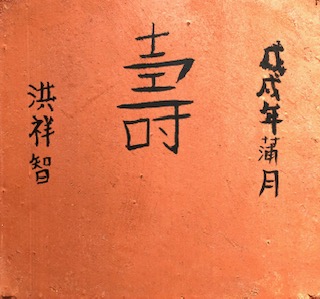 戊戌年蒲月
壽
洪祥智